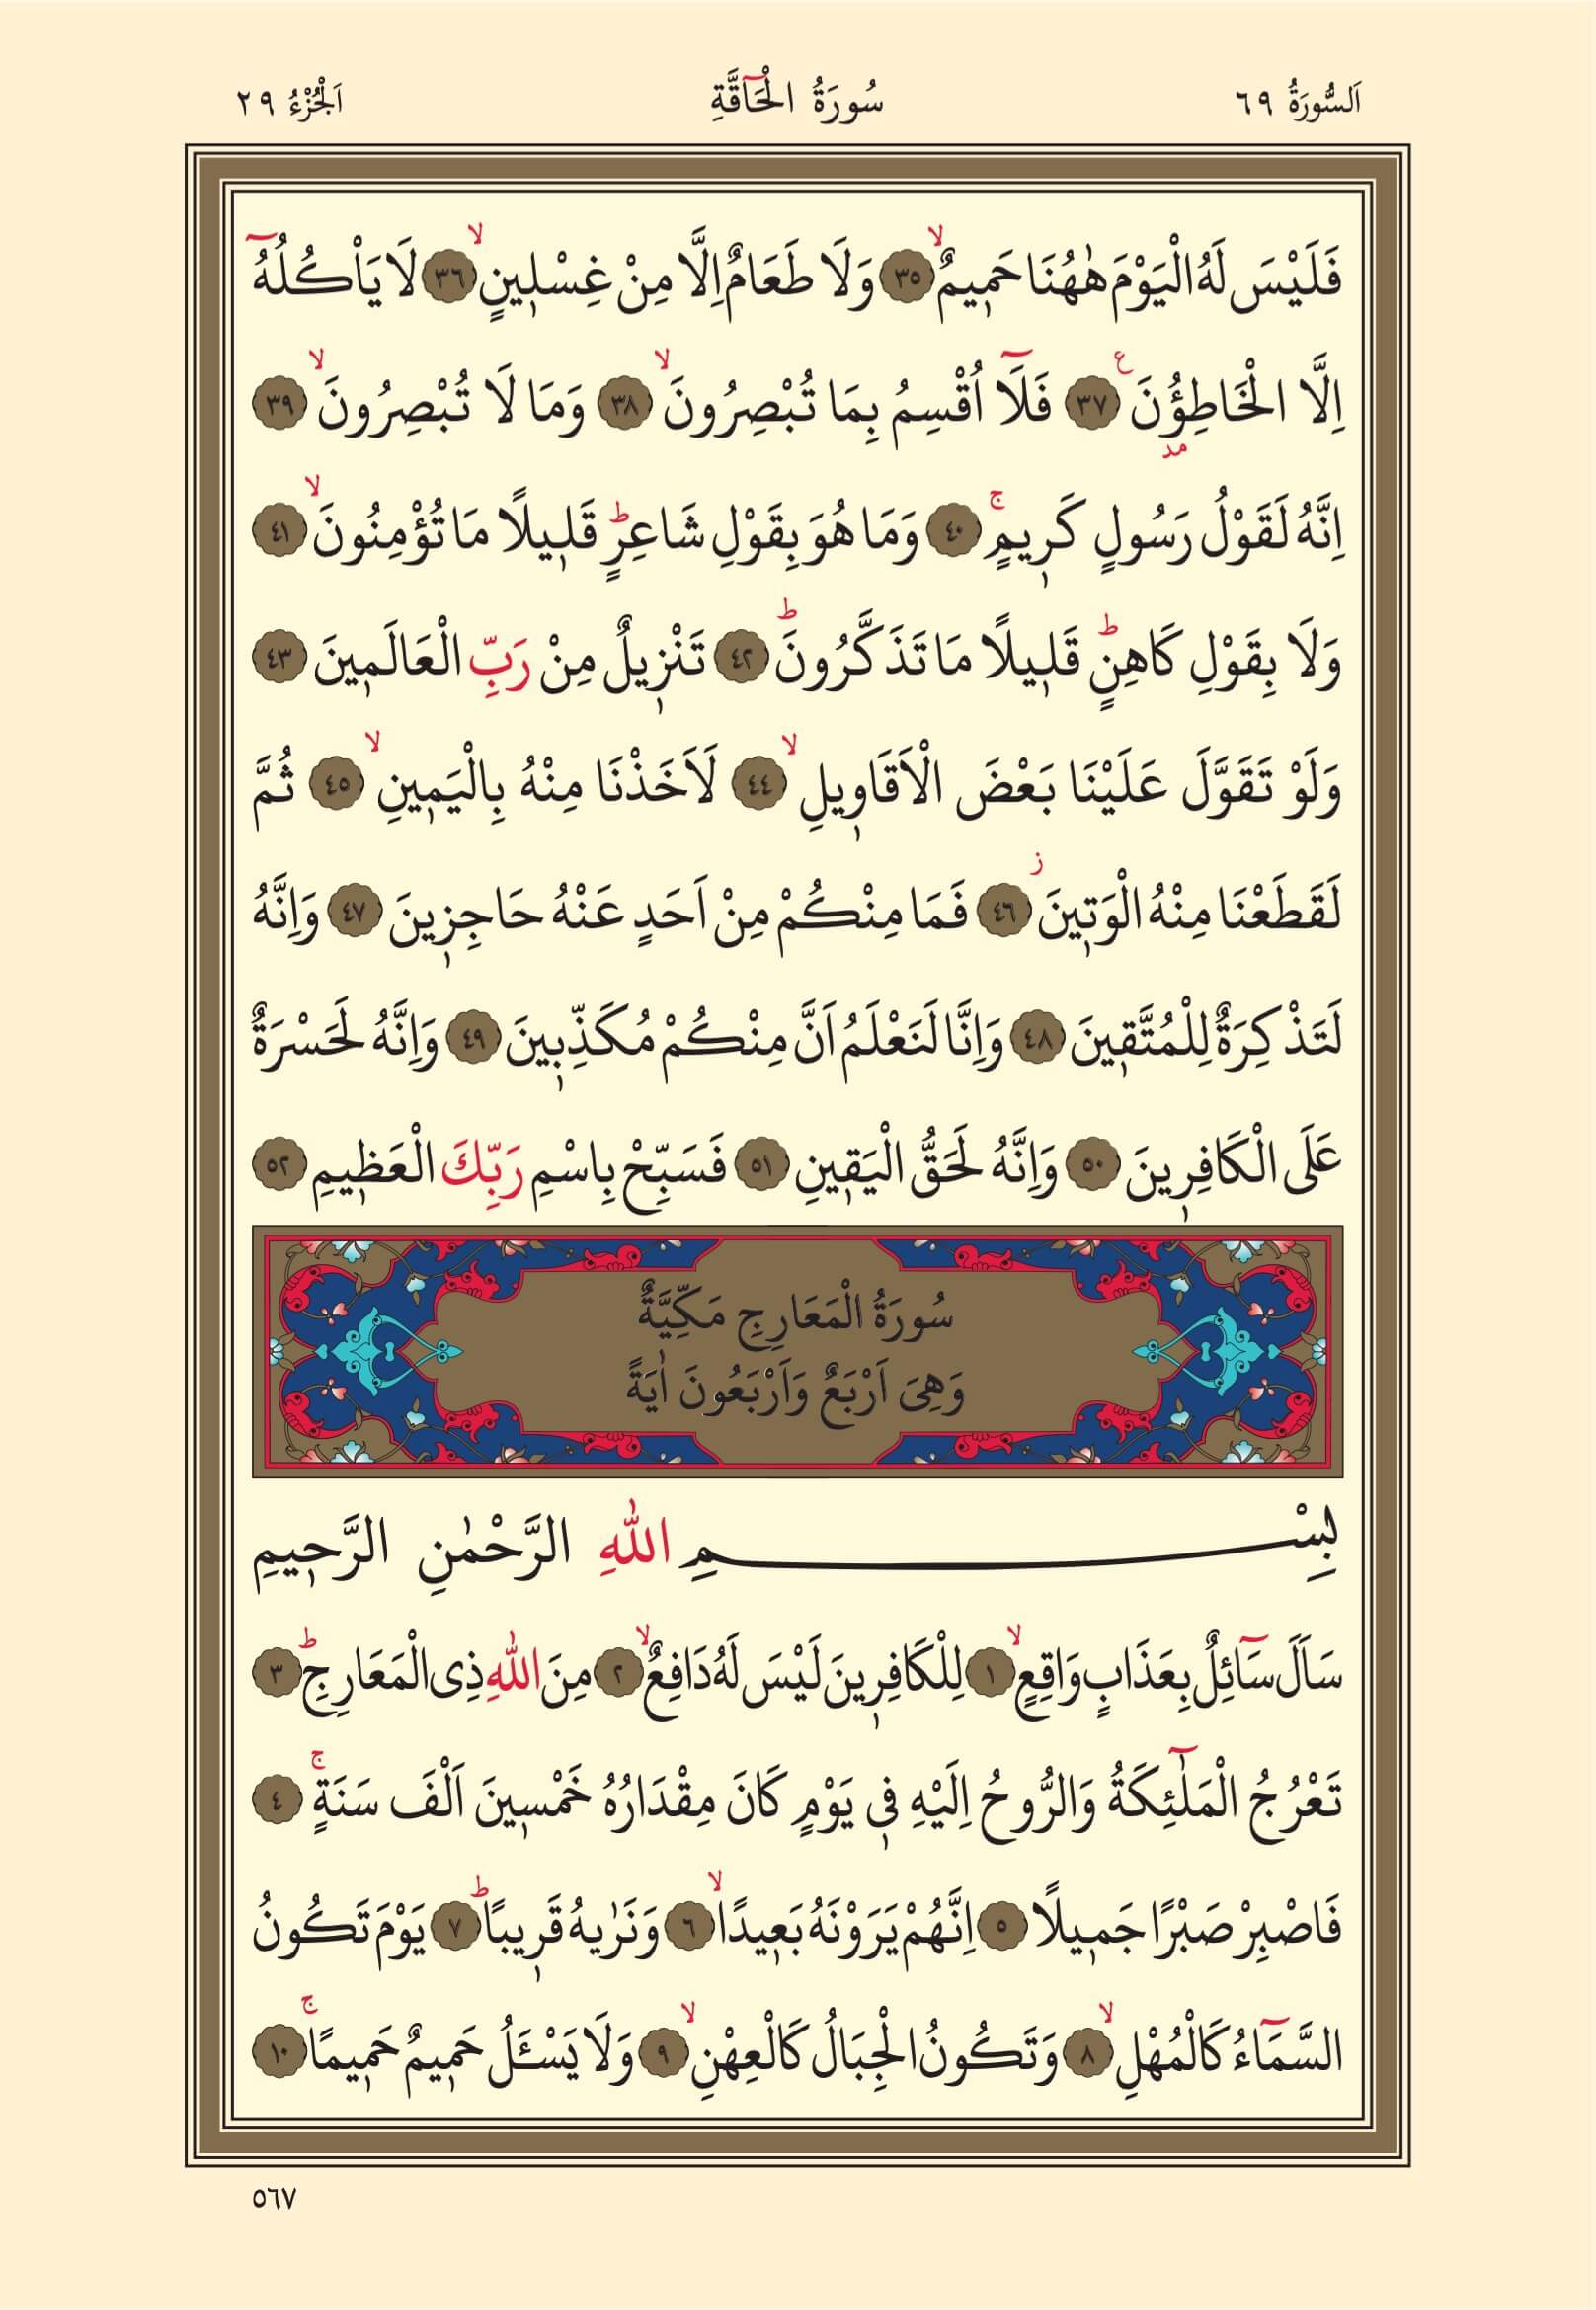 اَلسُّورَةُ ٦٩ سُورَةُ الْحَٓاقَّةِ اَلْجُزْءُ ٢٩
فَلَيْسَ لَهُ الْيَوْمَ هٰهُنَا حَم۪يمٌۙ ٣٥ وَلَا طَعَامٌ اِلَّا مِنْ غِسْل۪ينٍۙ ٣٦ لَا يَأْكُلُهُٓ
اِلَّا الْخَاطِؤُ۫نَ ع ٣٧ فَلَٓا اُقْسِمُ بِمَا تُبْصِرُونَۙ ٣٨ وَمَا لَا تُبْصِرُونَۙ ٣٩
اِنَّهُ لَقَوْلُ رَسُولٍ كَر۪يمٍۚ ٤٠ وَمَا هُوَ بِقَوْلِ شَاعِرٍۜ قَل۪يلًا مَا تُؤْمِنُونَۙ ٤١
وَلَا بِقَوْلِ كَاهِنٍۜ قَل۪يلًا مَا تَذَكَّرُونَۜ ٤٢ تَنْز۪يلٌ مِنْ رَبِّ الْعَالَم۪ينَ ٤٣
وَلَوْ تَقَوَّلَ عَلَيْنَا بَعْضَ الْاَقَاو۪يلِۙ ٤٤ لَاَخَذْنَا مِنْهُ بِالْيَم۪ينِۙ ٤٥ ثُمَّ
لَقَطَعْنَا مِنْهُ الْوَت۪ينَۘ ٤٦ فَمَا مِنْكُمْ مِنْ اَحَدٍ عَنْهُ حَاجِز۪ينَ ٤٧ وَاِنَّهُ
لَتَذْكِرَةٌ لِلْمُتَّق۪ينَ ٤٨ وَاِنَّا لَنَعْلَمُ اَنَّ مِنْكُمْ مُكَذِّب۪ينَ ٤٩ وَاِنَّهُ لَحَسْرَةٌ
عَلَى الْكَافِر۪ينَ ٥٠ وَاِنَّهُ لَحَقُّ الْيَق۪ينِ ٥١ فَسَبِّحْ بِاسْمِ رَبِّكَ الْعَظ۪يمِ ٥٢
سُورَةُ الْمَعَارِجِ مَكِّيَّةٌ
وَهِىَ اَرْبَعٌ وَاَرْبَعُونَ اٰيَةً
بِسْمِ اللّٰهِ الرَّحْمٰنِ الرَّح۪يمِ
سَاَلَ سَٓائِلٌ بِعَذَابٍ وَاقِعٍۙ ١ لِلْكَافِر۪ينَ لَيْسَ لَهُ دَافِعٌۙ ٢ مِنَ اللّٰهِ ذِى الْمَعَارِجِۜ ٣
تَعْرُجُ الْمَلٰٓئِكَةُ وَالرُّوحُ اِلَيْهِ ف۪ي يَوْمٍ كَانَ مِقْدَارُهُ خَمْس۪ينَ اَلْفَ سَنَةٍۚ ٤
فَاصْبِرْ صَبْرًا جَم۪يلًا ٥ اِنَّهُمْ يَرَوْنَهُ بَع۪يدًاۙ ٦ وَنَرٰيهُ قَر۪يبًاۜ ٧ يَوْمَ تَكُونُ
السَّمَٓاءُ كَالْمُهْلِۙ ٨ وَتَكُونُ الْجِبَالُ كَالْعِهْنِۙ ٩ وَلَا يَسْـَٔلُ حَم۪يمٌ حَم۪يمًاۚ ١٠
٥٦٧